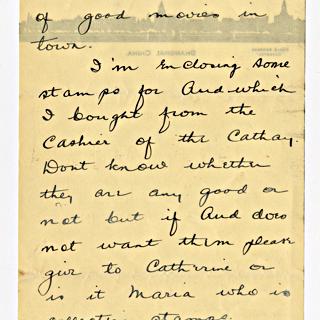 of good movies in
town.
I'm Enclosing some
stamps for Aud which
I bought from the
Cashier of the Cathay.
Dont know whether
they are any good or
not but if Aud does
not want them please
give to Catherine or
is it Maria who is
collecting stamps.